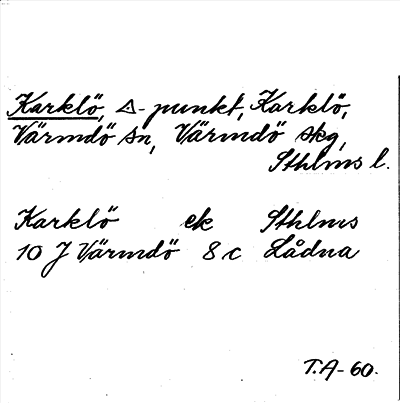 Karklö, ⚠-punkt, Karklö,
Värmdö sn, Värmdö skg,
Sthlms l.
Karklö ek Sthlms
10 J Värmdö 8 c Lådna
T.A-60.